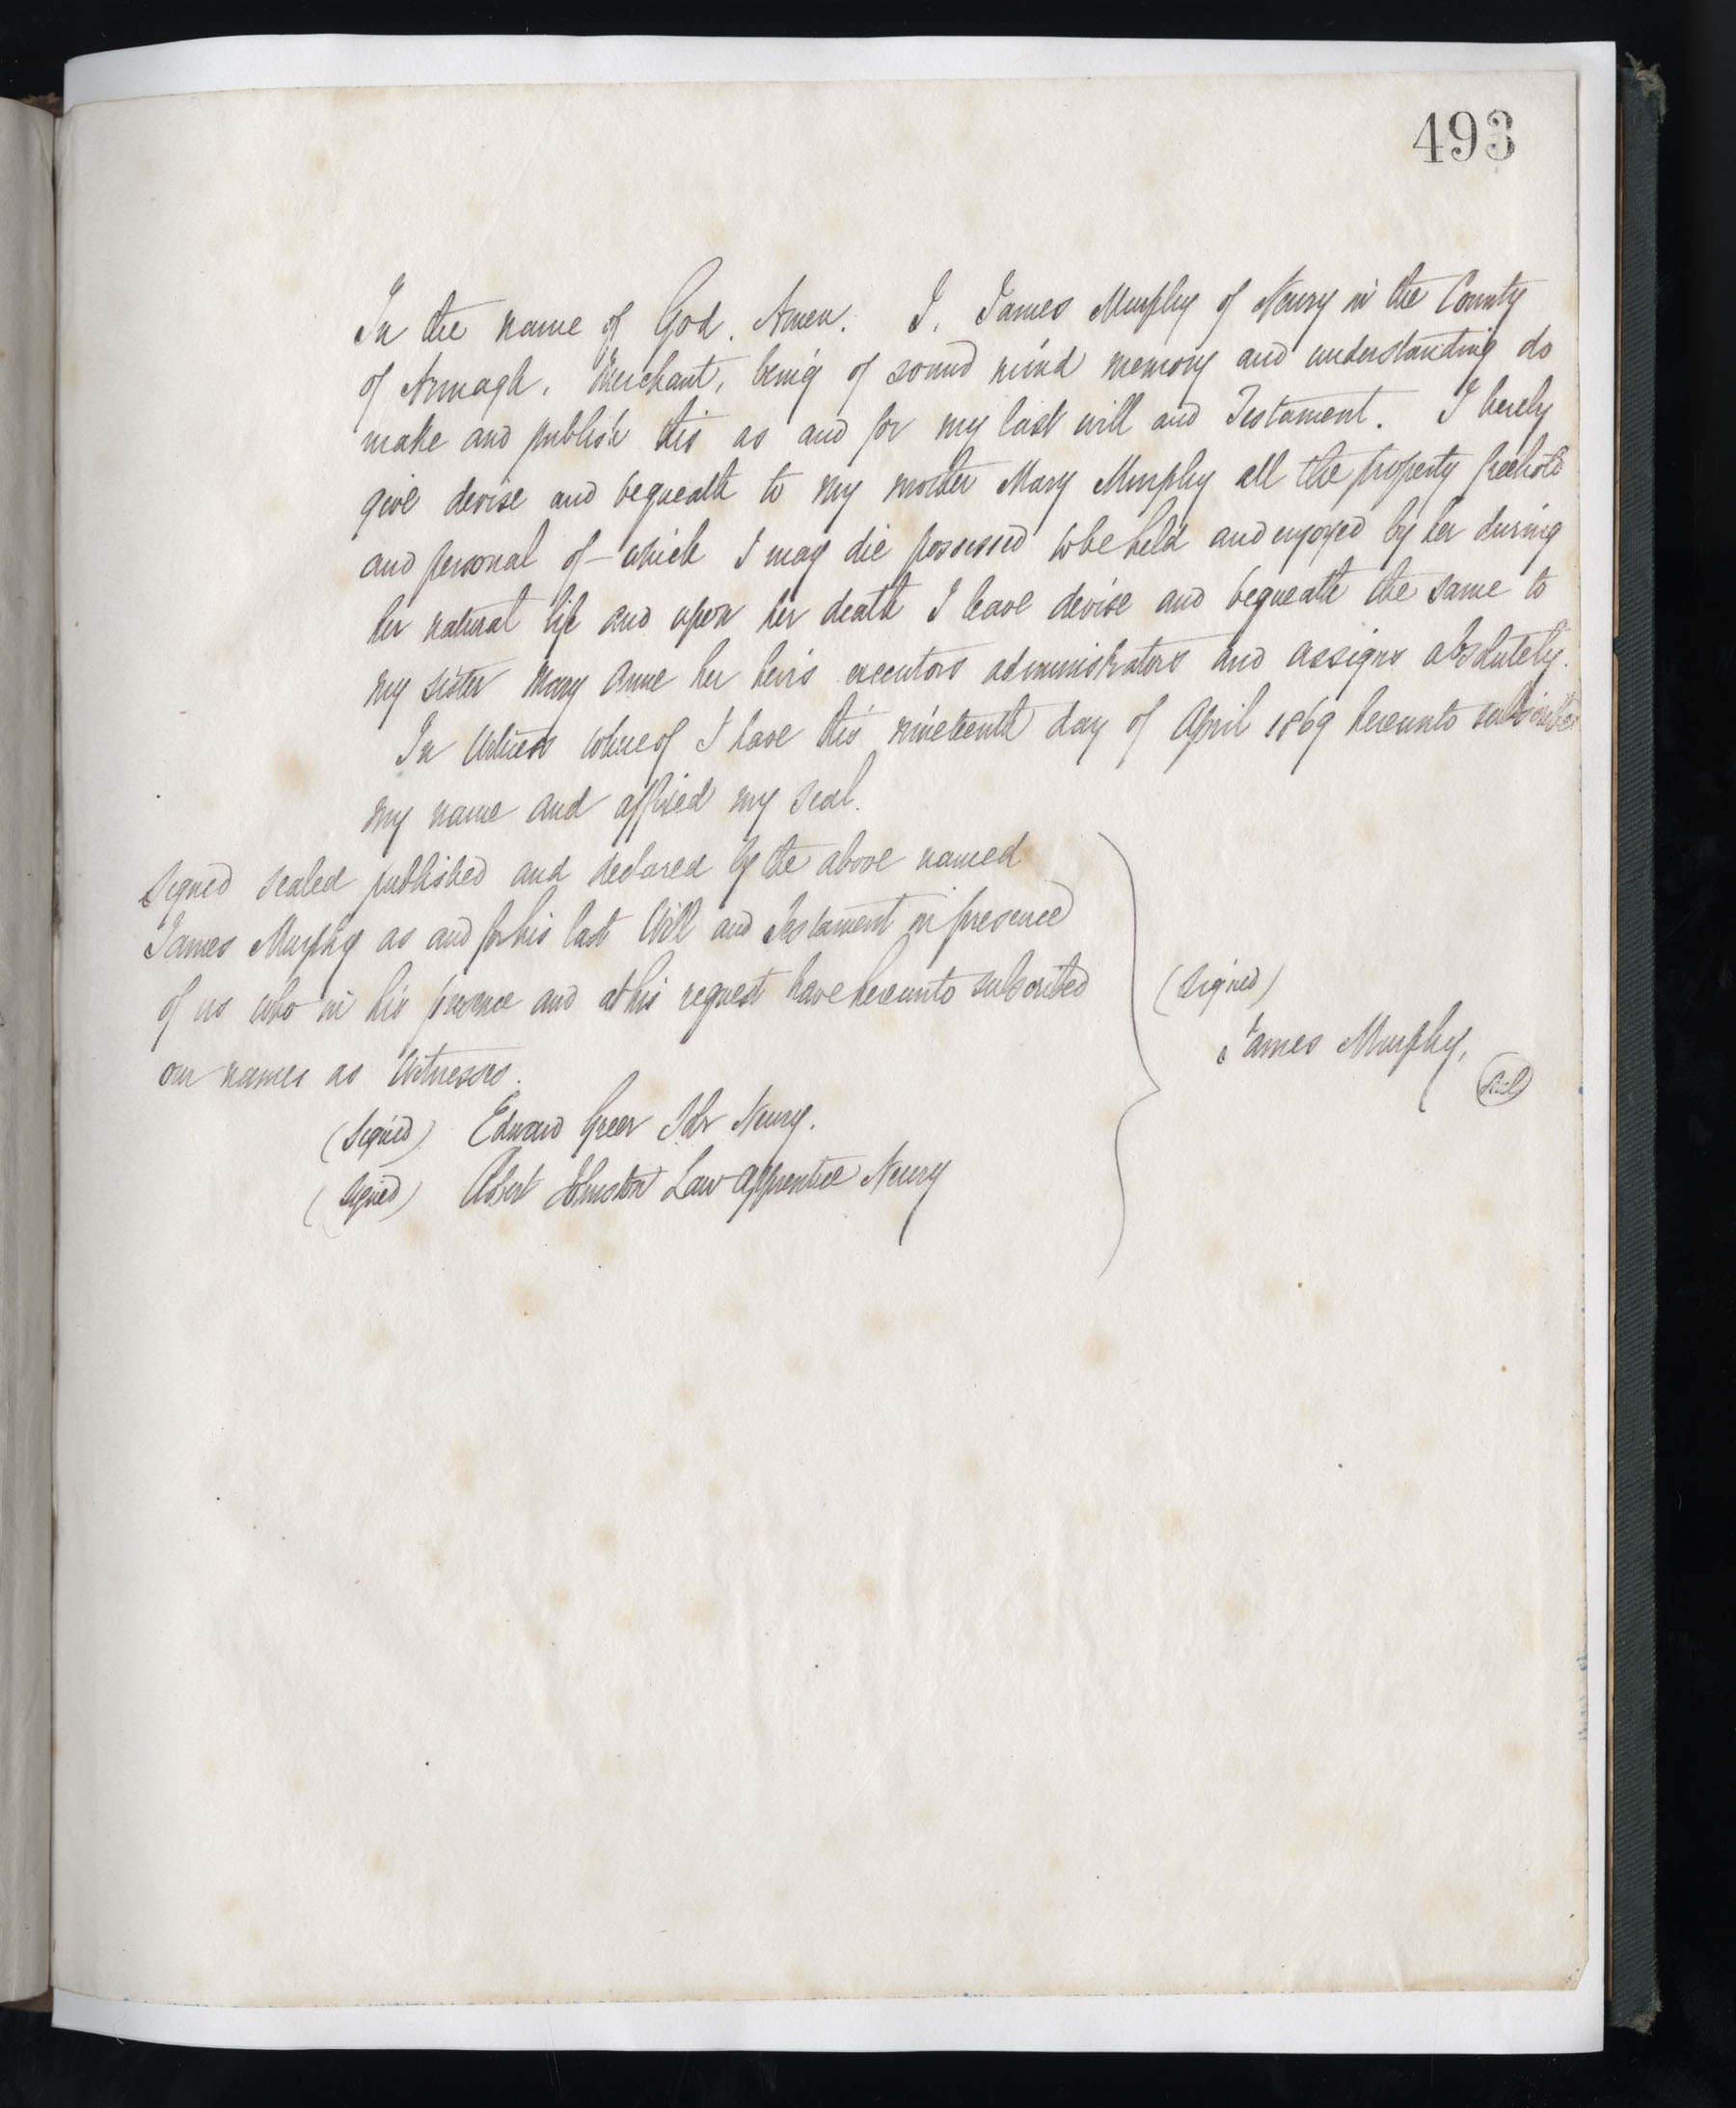 493
In the name of God. Amen. I, James Murphy of Newry in the County
of Armagh, Merchant, being of sound mind memory and understanding do
make and publish this as and for my last will and Testament. I hereby
give devise and bequeath to my mother Mary Murphy all the property freehold
and personal of which I may die possessed to be held and enjoyed by her during
her natural life and upon her death I leave devise and bequeath the same to
my sister Mary Anne her heirs executors administrators and assigns absolutely.
In Witness whereof I have this nineteenth day of April 1869 hereunto subscribed
my name and affixed my seal.
Signed sealed published and declared by the above named
James Murphy as and for his last Will and Testament in presence
of us who in his presence and at his request have hereunto subscribed
our names as Witnesses.
(Signed)
James Murphy,
Seal
(Signed) Edward Greer Solr Newry.
(Signed) Robert Johnston Law Apprentice Newry